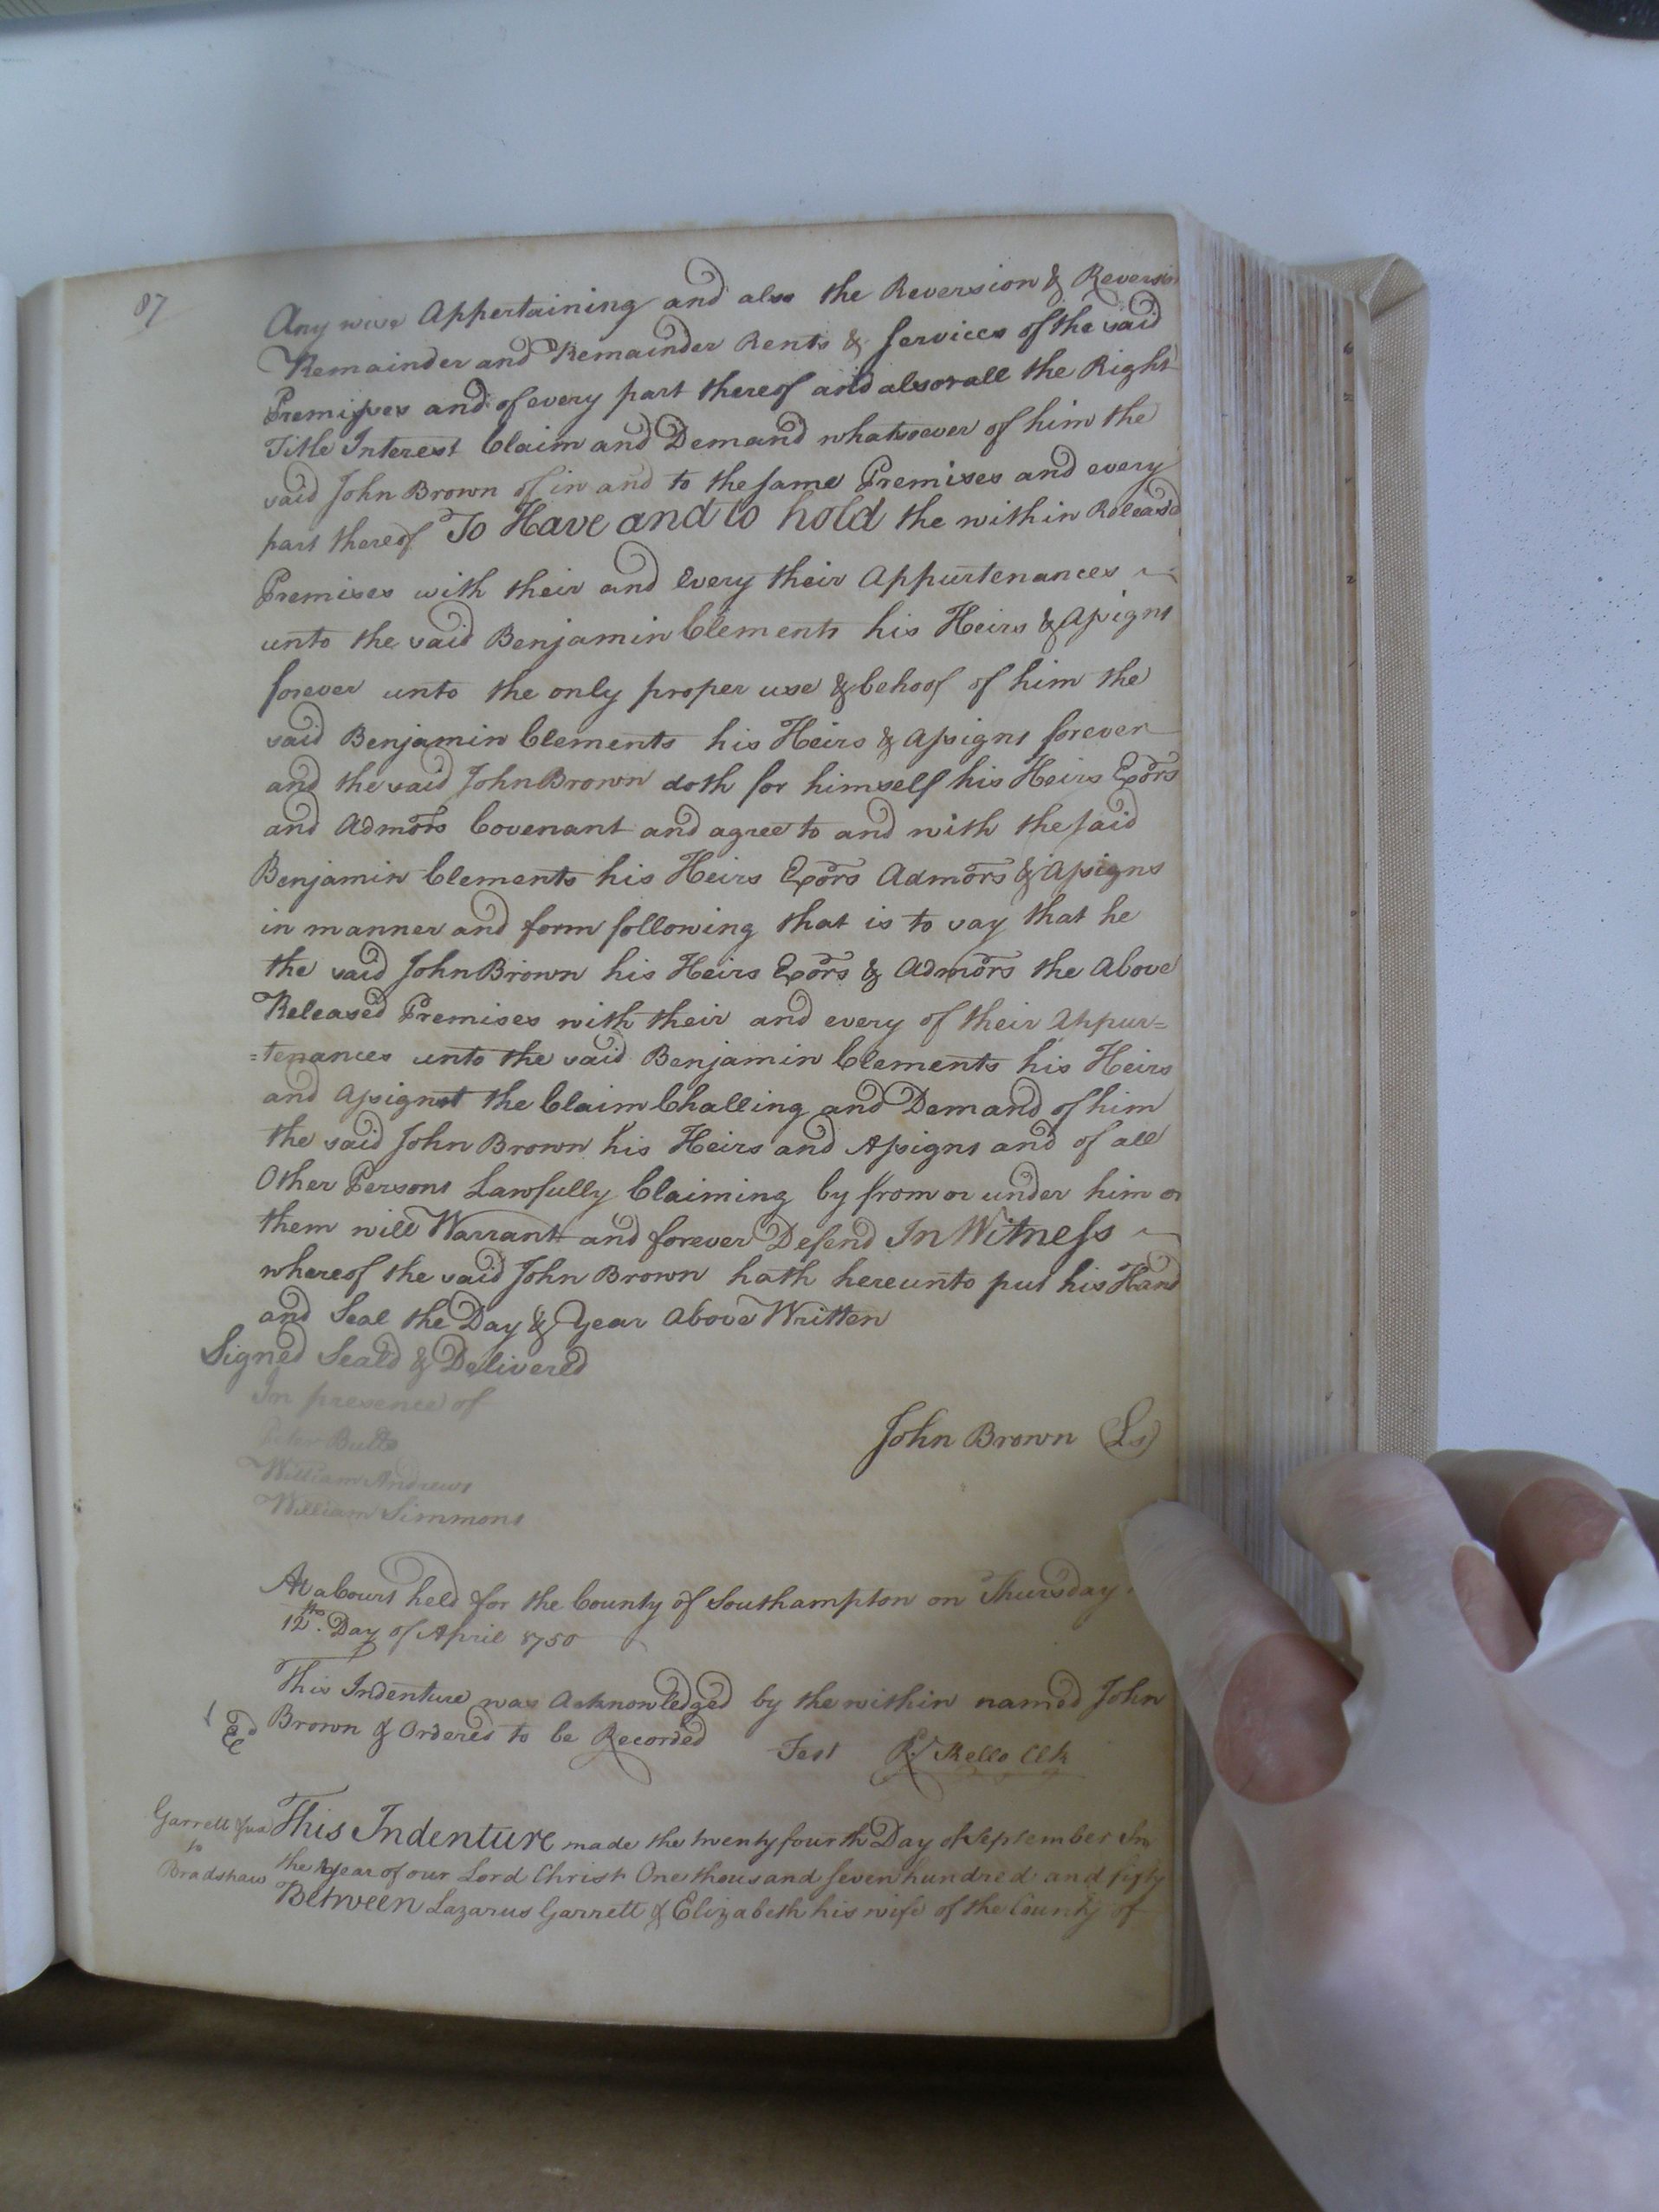 87
Any wise Appertaining and also the Reversion & Reversio
Remainder and Remainder Rents & Services of the said
Premisses and of every part thereof and also all the Right
Title Interest Claim and Demand whatsoever of him the
said John Brown of in and to the same Premises and every
part thereof To Have and to hold the within Releas'd
Premises with their and Every their Appurtenances
unto the said Benjamin Clements his Heirs & Assigns
forever unto the only proper use & behoof of him the
said Benjamin Clements his Heirs & Assigns forever
and the said John Brown doth for himself his Heirs Exõrs
and Admõrs Covenant and agree to and with the said
Benjamin Clements his Heirs Exõrs Admõrs & Assigns
in manner and form following that is to say that he
the said John Brown his Heirs Exõrs & Admõrs the Above
Released Premises with their and every of their Appur=
=tenances unto the said Benjamin Clements his Heirs
and Assignst the Claim Challing and Demand of him
the said John Brown his Heirs and Assigns and of all
Other Persons Lawfully Claiming by from or under him or
them will Warrant and forever Defend In Witness
whereof the said John Brown hath hereunto put his Hand
and Seal the Day & Year Above Written
Signed Seald & Delivered
In presence of
John Brown (Ls)
Butts
William Andrews
William Simmons
At a Court held for the County of Southampton on Thursday
12th. Day of April 1750
This Indenture was Acknowledged by the within named John
Brown & Ordered to be Recorded Test R. Kello Clk
Garrett & ux
to
Bradshaw
This Indenture made the twenty fourth Day of September In
the Year of our Lord Christ One thousand seven hundred and fifty
Between Lazarus Garrett & Elizabeth his wife of the County of